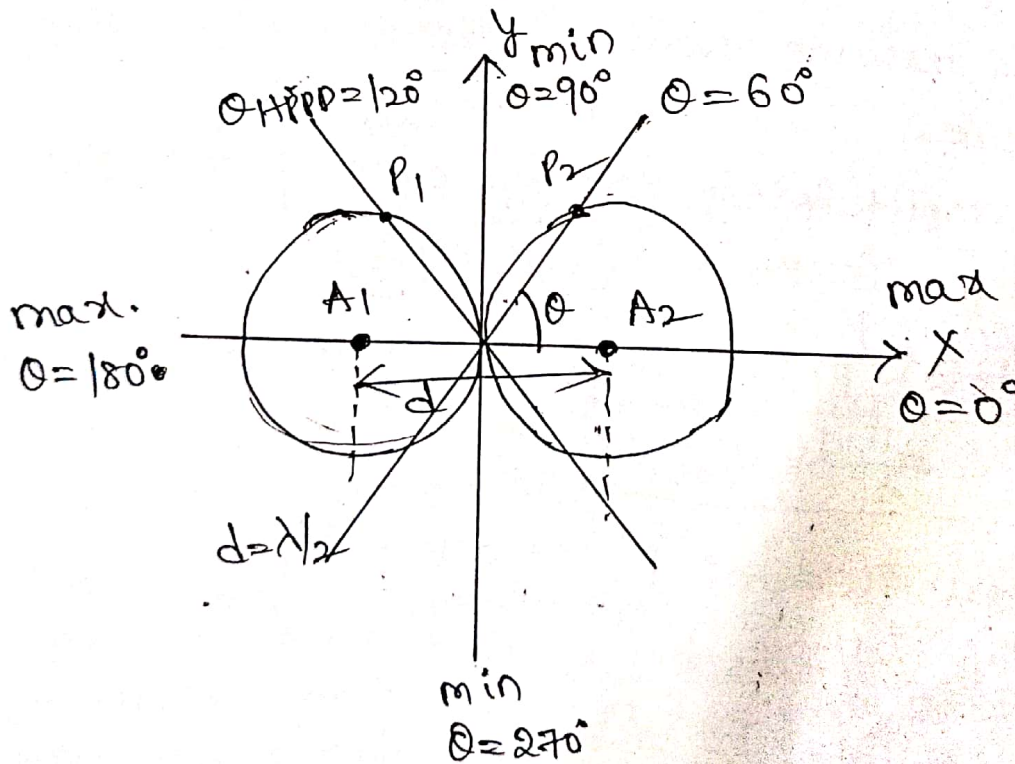 y min
θ=90°
θHPPD=120°
θ=60°
P1
P2
max.
θ=180°
A1
θ
A2
max
X
θ=0°
d
d=λ/2
min
θ=270°